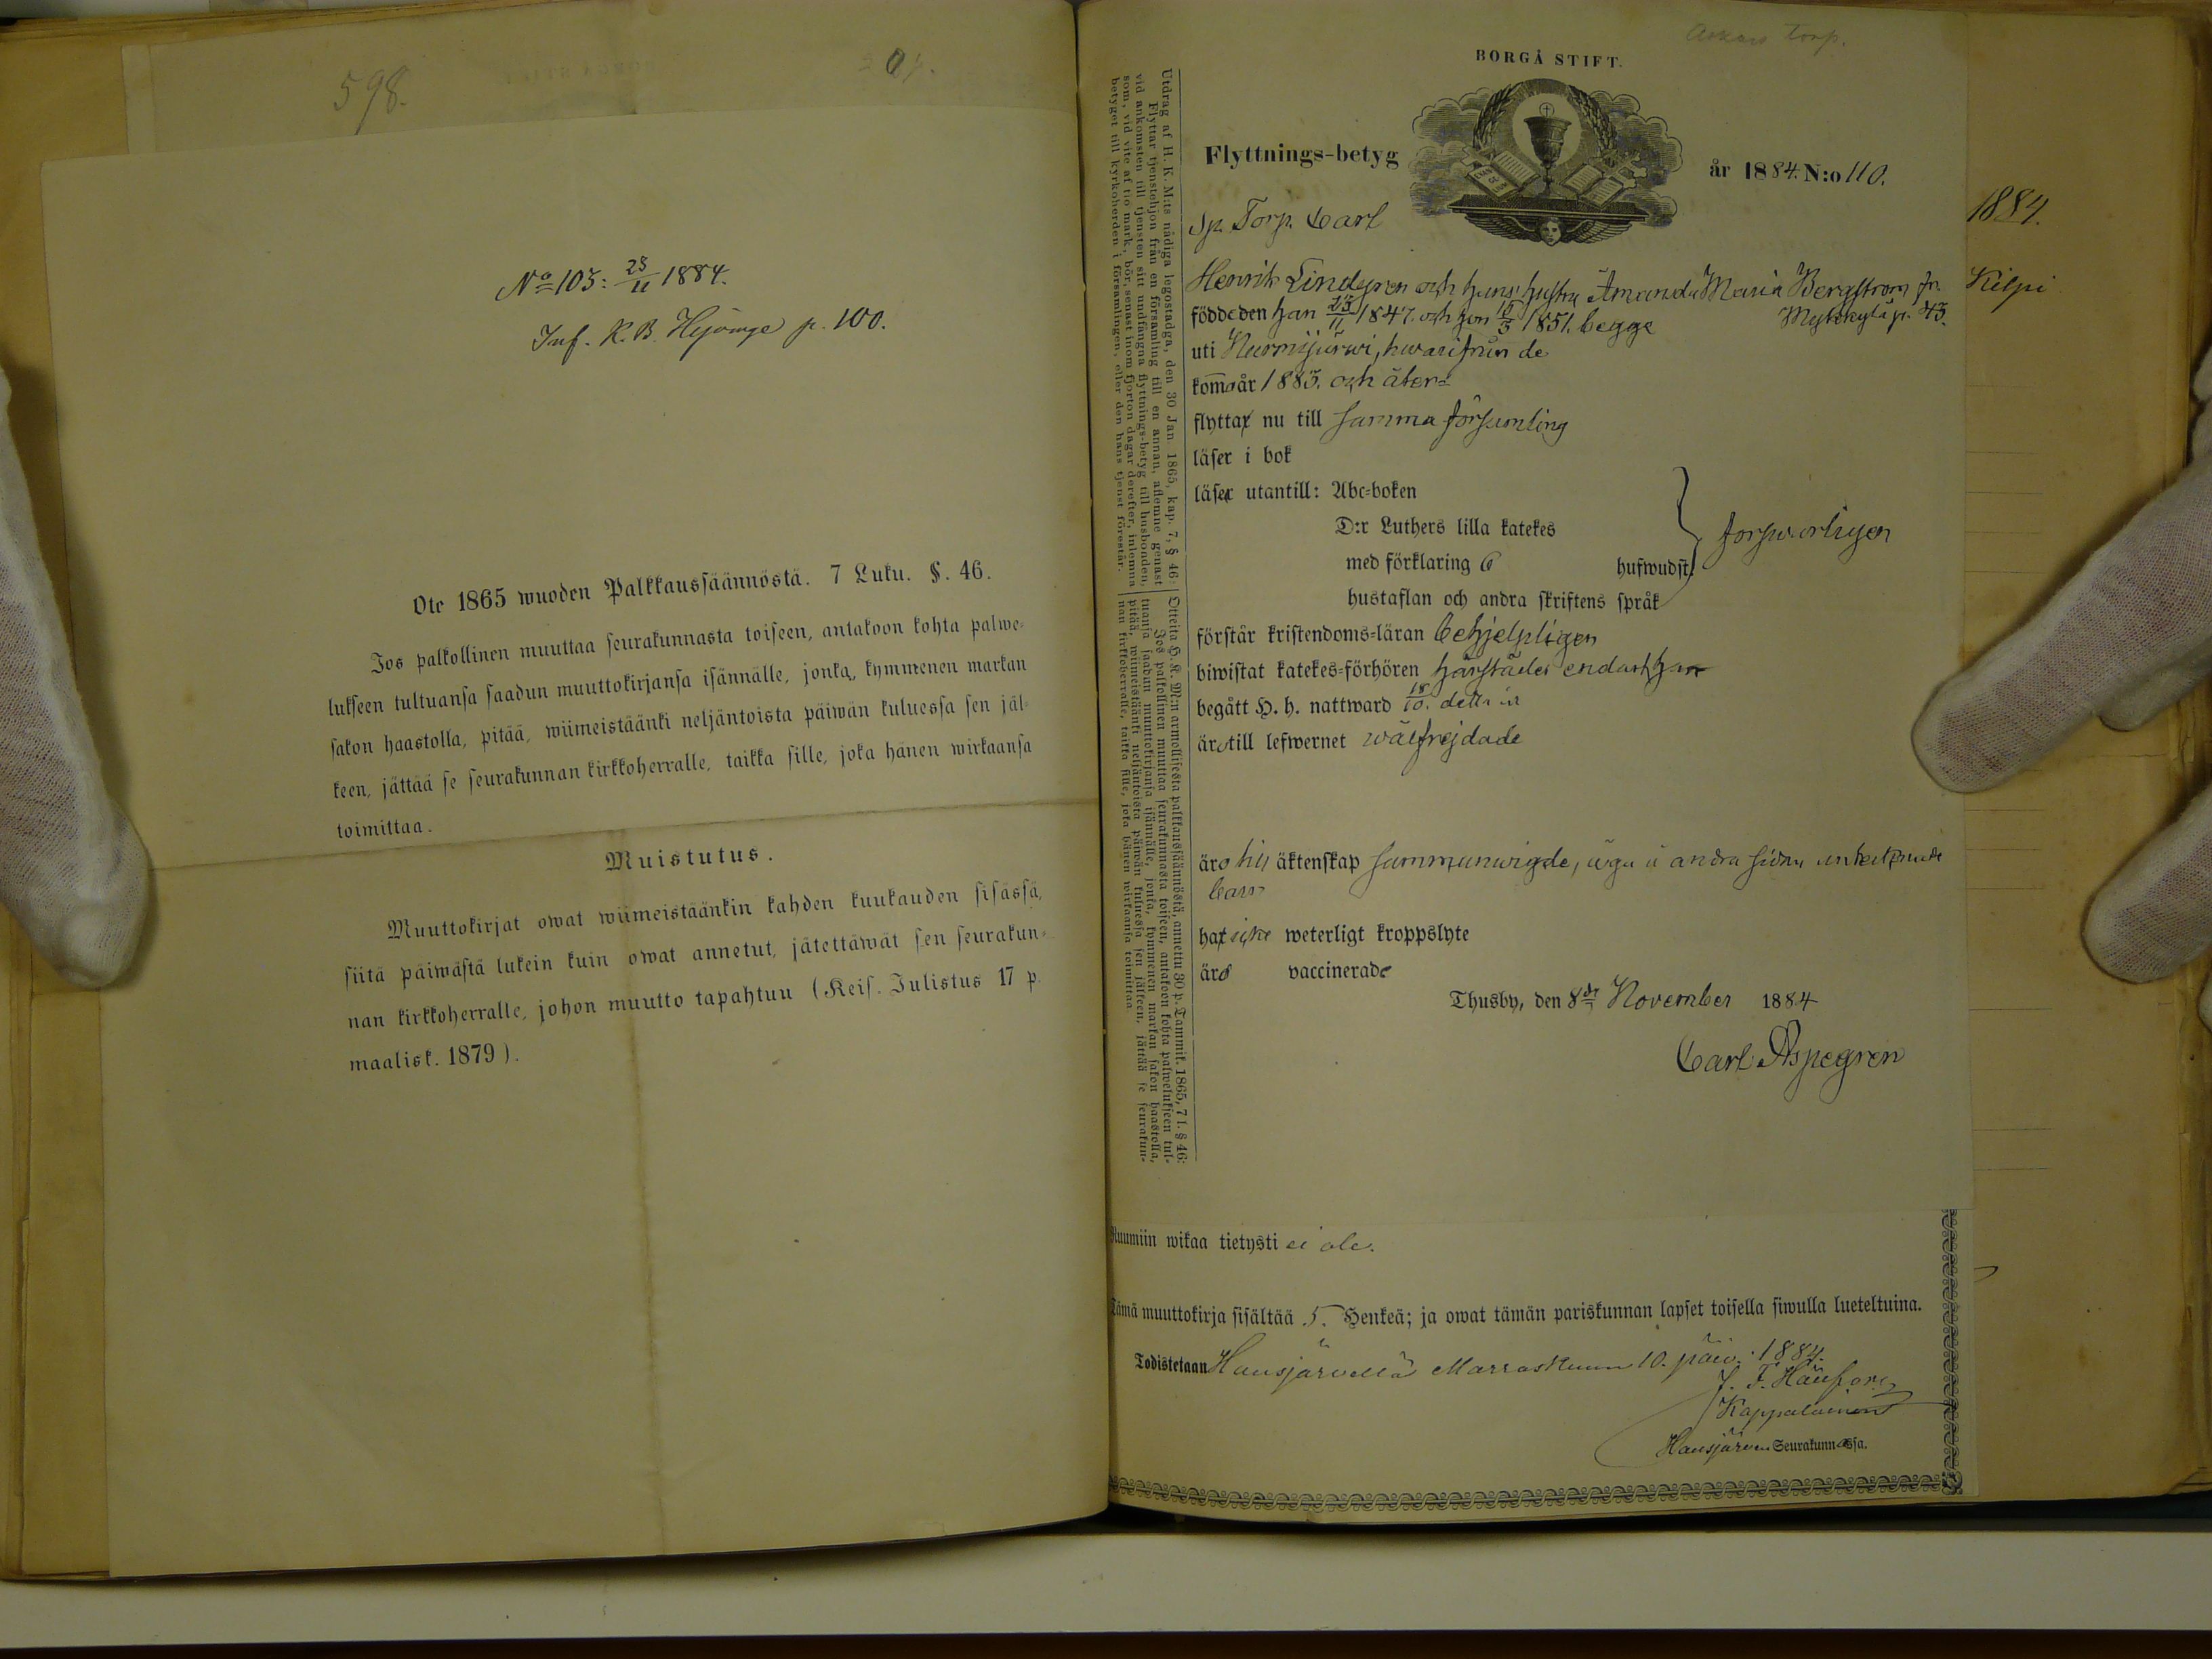 598.
No 103: 23/11 1884.
Inf. K. B. Hyvinge p. 100.
Ote 1865 wuoden Palkkaussäännöstä. 7 Luku. §. 46.
Jos palkollinen muuttaa seurakunnasta toiseen, antakoon kohta palwe-
lukseen tultuansa saadun muuttokirjansa isännälle, jonka, kymmenen markan
sakon haastolla, pitää, wiimeistäänki neljäntoista päiwän kuluessa sen jäl-
keen, jättää se seurakunnan kirkkoherralle, taikka sille, joka hänen wirkaansa
toimittaa.
Muistutus.
Muuttokirjat owat wiimeistäänkin kahden kuukauden sisässä,
siitä päiwästä lukein kuin owat annetut, jätettäwät sen seurakun-
nan kirkkoherralle, johon muutto tapahtuu (Keis. Julistus 17 p.
maalisk. 1879).
Utdrag af H. K. M:ts nådiga legostadga, den 30 Jan. 1865, kap. 7, § 46:
Flyttar tjenstehjon från en församling till en annan, aflemne genast
vid ankomsten till tjensten sitt undfångna flyttnings-betyg till husbonden,
som, vid vite af tio mark, bör, senast inom fjorton dagar derefter, inlemna
betyget till kyrkoherden i församlingen, eller den hans tjenst förestår.
Otteita H. K. M:n armollisesta palkkaussäännöstä, annettu 30 p. Tammik. 1865, 7 l. § 46:
Jos palkollinen muuttaa seurakunnasta toiseen, antakoon kohta palwelukseen tul-
tuansa saadun muuttokirjansa isännälle, jonka, kymmenen markan sakon haastolla,
pitää, wiimeistäänki neljäntoista päiwän kuluessa sen jälkeen, jättää se seurakun-
nan kirkkoherralle, taikka sille, joka hänen wirkaansa toimittaa.
torp.
BORGÅ STIFT.
Flyttnings-betyg
år 1884. N:o 110.
Sp. Torp. Carl
Henrik Lindgren och hans hustru Amanda Maria Bergström fr.
födde den han 13/11 1847. och hon 15/3 1851. begge
uti Nurmijärwi, hwarifrån de
kommo år 1883. och åter-
flyttar nu till samma församling
läser i bok
läser utantill: Abc-boken
D:r Luthers lilla katekes
med förklaring 6 hufwudst.
hustaflan och andra skriftens språk
förswarligen
förstår kristendoms-läran behjelpligen
biwistat katekes-förhören härstädes endast han
begått H. h. nattward 18/10. detta år
äro till lefwernet wälfrejdade
äro till äktenskap sammanwigde, äga å andra sidan
barn
har icke weterligt kroppslyte
äro vaccinerade
Thusby, den 8de November 1884
Carl Aspegren
1884.
Kilpi
Ruumiin wikaa tietysti ei ole.
Tämä muuttokirja sisältää 5. Henkeä; ja owat tämän pariskunnan lapset toisella siwulla lueteltuina.
Todistetaan Hausjärvellä Marraskuun 10. päiv. 1884.
Kappalainen
Hausjärven Seurakunnassa.